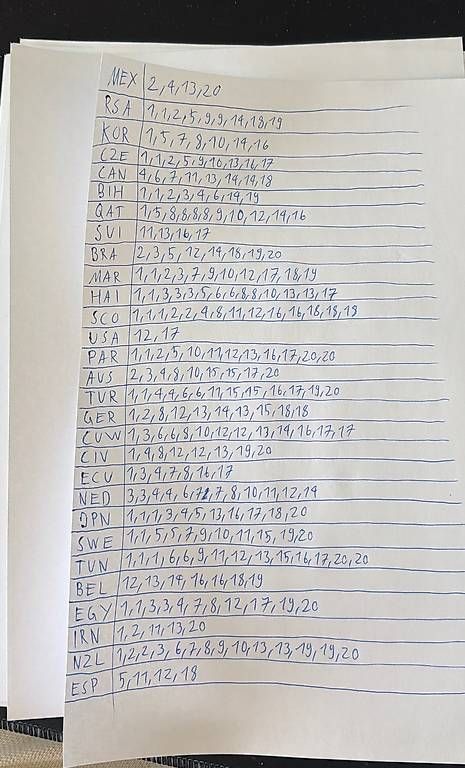 MEX 2,4,13,20
RSA 1,1,2,5,9,9,14,18,19
KOR 1,5,7,8,10,14,16
CZE 1,1,2,5,9,10,13,16,17
CAN 4,6,7,11,13,14,14,18
BIH 1,1,2,3,4,6,14,19
QAT 1,5,8,8,8,8,9,10,12,14,16
SUI 11,13,16,17
BRA 2,3,5,12,14,18,19,20
MAR 1,1,2,3,7,9,10,12,17,18,19
HAI 1,1,3,3,3,5,6,6,8,8,10,13,13,17
SCO 1,1,1,2,2,4,8,11,12,16,16,18,18,19
USA 12,17
PAR 1,1,2,5,10,11,12,13,16,17,20,20
AUS 2,3,4,8,10,15,15,17,20
TUR 1,1,4,4,6,6,11,15,15,16,17,19,20
GER 1,2,8,12,13,14,13,15,18,18
CUW 1,3,6,6,8,10,12,12,13,14,16,17,17
CIV 1,4,8,12,12,13,19,20
ECU 1,3,4,7,8,16,17
NED 3,3,4,4,6,7,7,8,10,11,12,14
JPN 1,1,1,3,4,5,13,16,17,18,20
SWE 1,1,5,5,7,9,10,11,15,19,20
TUN 1,1,1,6,6,9,11,12,13,15,16,17,20,20
BEL 12,13,14,16,16,18,19
EGY 1,1,3,3,4,7,8,12,17,19,20
IRN 1,2,11,13,20
NZL 1,2,2,3,6,7,8,9,10,13,13,19,19,20
ESP 5,11,12,18